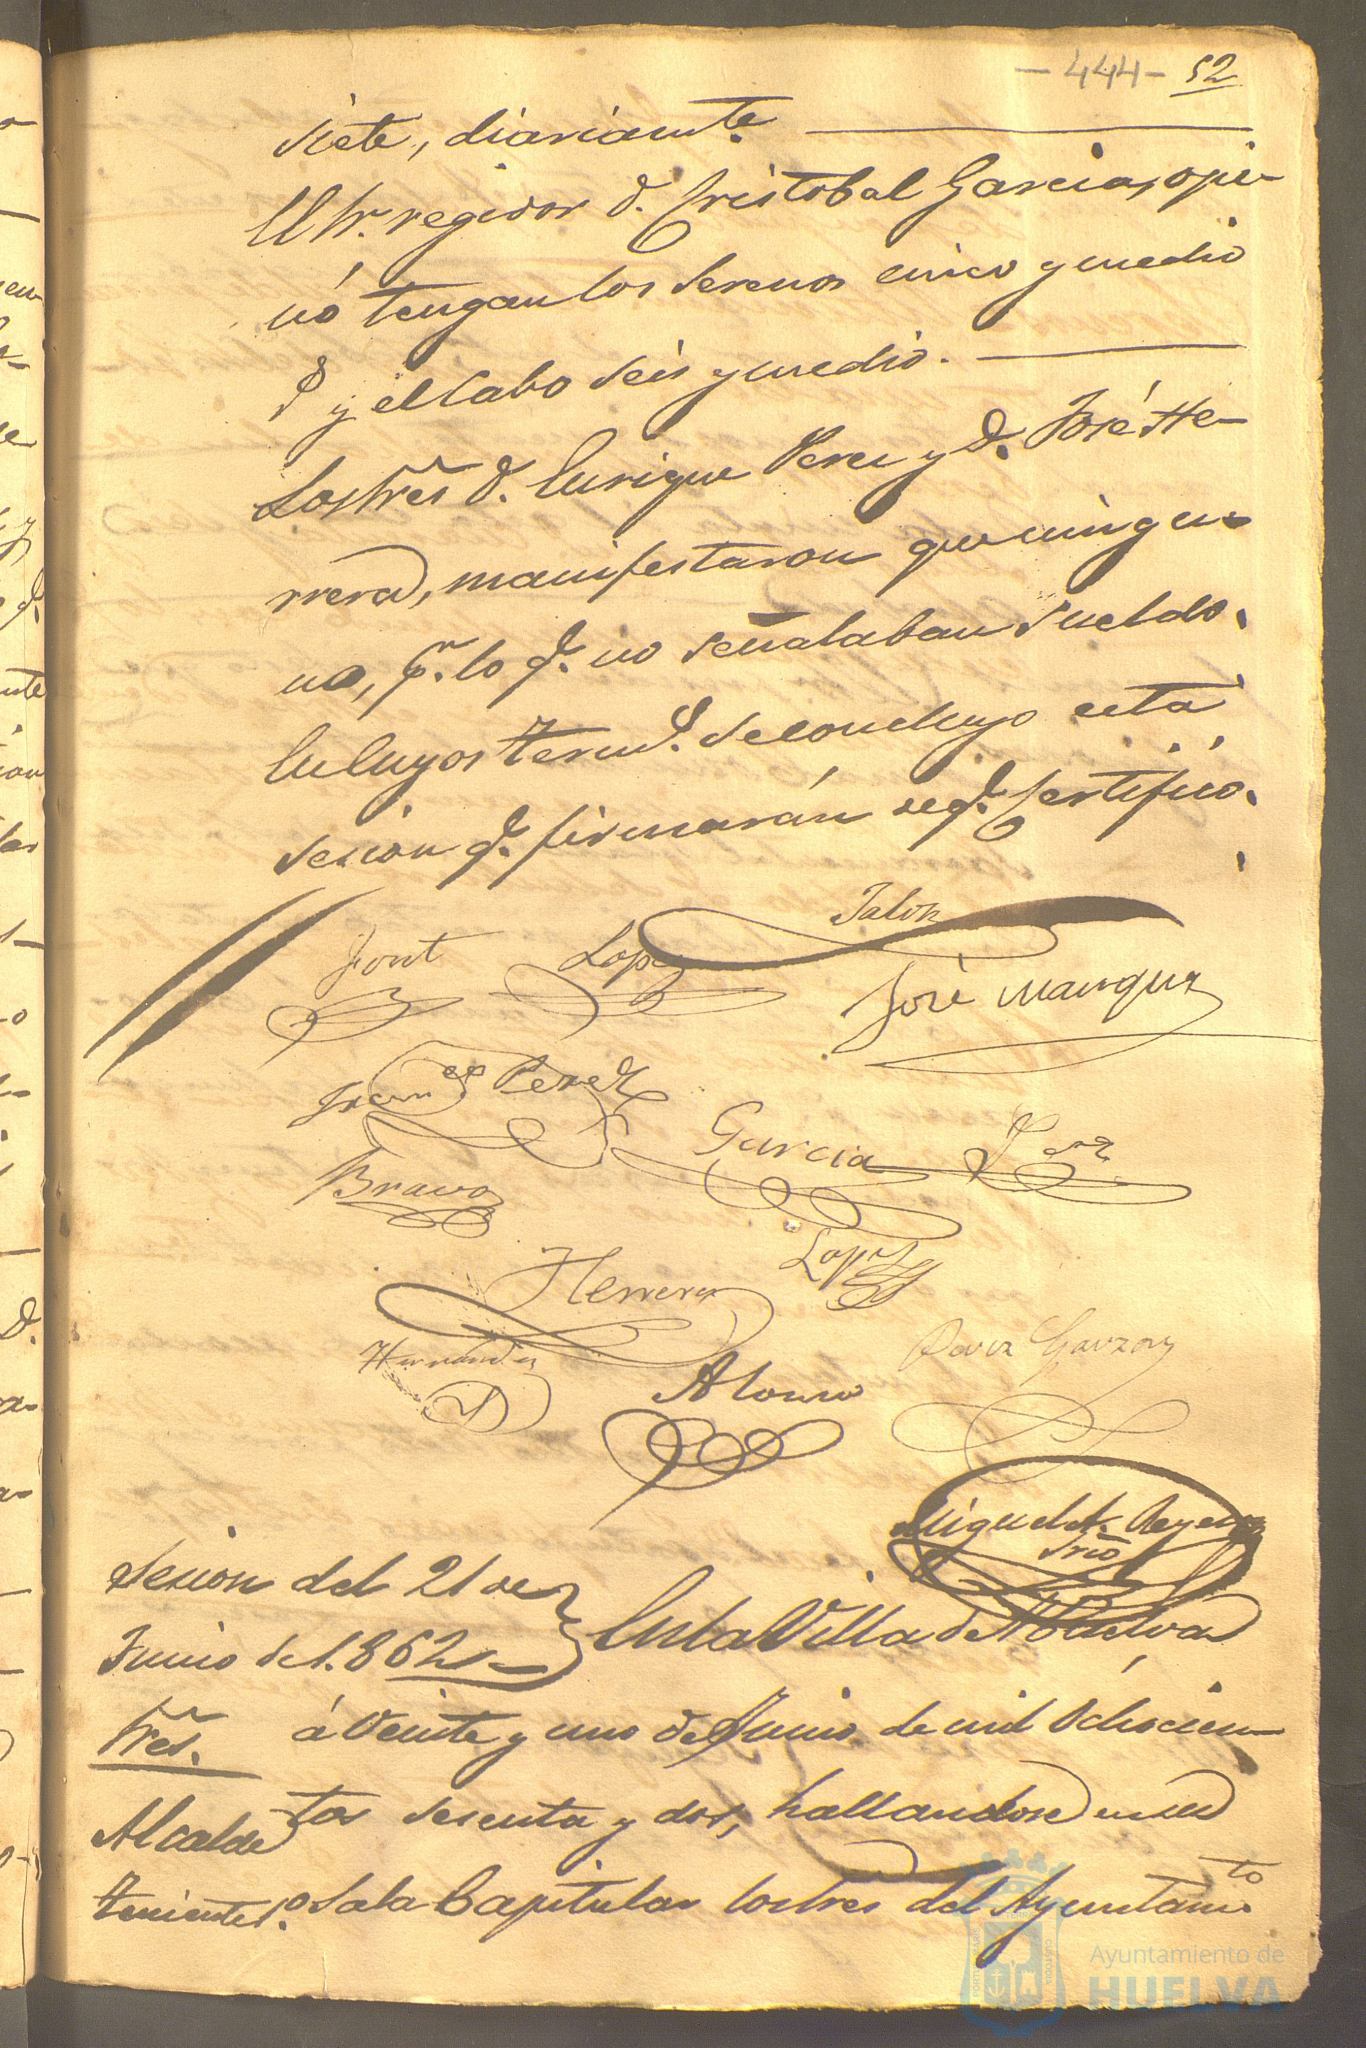 - 444 - 52
siete, diariamte.
El Sr. regidor D. Cristobal Garcia, opi-
nó tengan los serenos cinco y medio
y el Cabo seis y medio.
Los Sres. D. Enrique Perez y D. José He-
rrera, manifestaron que ningu-
no, pr. lo q. no señalaban sueldo.
En cuyos termos. se concluyo esta
sesion q. firmarán seg. Certifico.
Jalon
Font Lopez
José Marquez
Franco Perez
Garcia
Bravo
Lopez
Herrera
Hernandez
Perez Garzon
Alonso
Miguel A. Reyes
Srio
Sesion del 21 de
Junio de 1.862
En la Villa de Huelva
Sres.
á Veinte y uno de Junio de mil Ochocien-
tos sesenta y dos, hallandose en su
Alcalde
Sala Capitular los Sres del Ayuntamto
Teniente 1.o
Ayuntamiento de
HUELVA